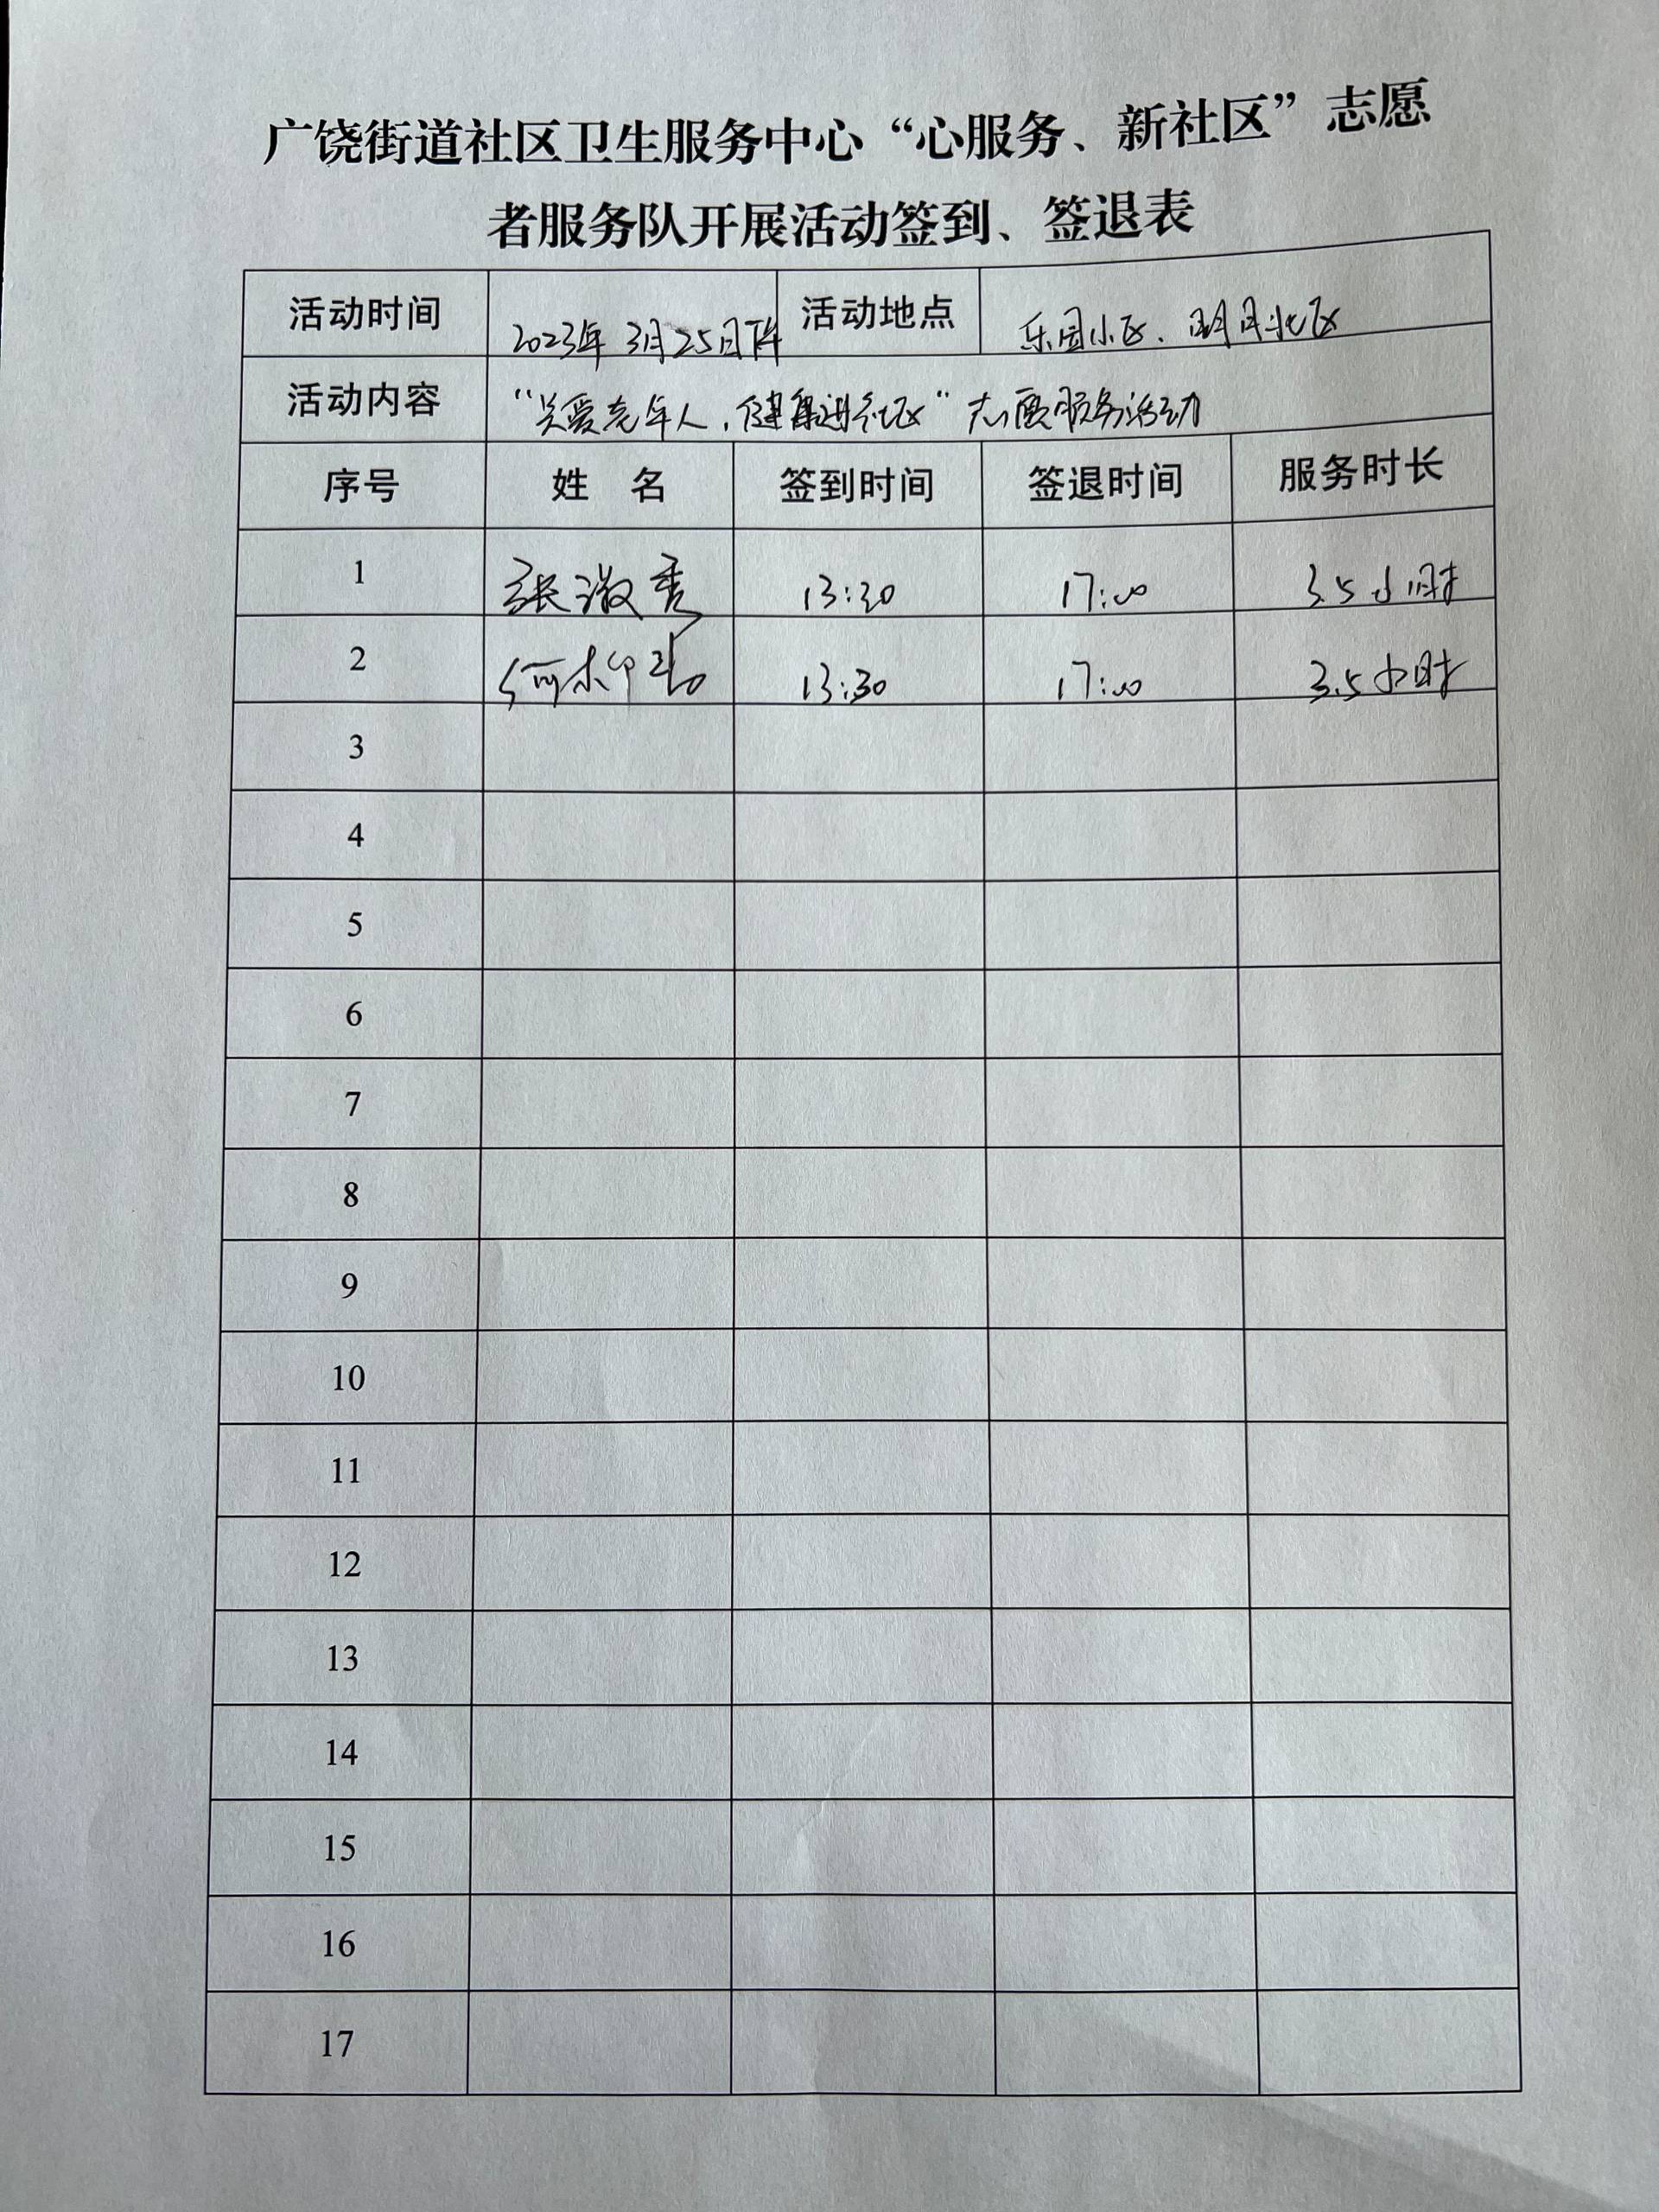 广饶街道社区卫生服务中心“心服务、新社区”志愿
者服务队开展活动签到、签退表
活动时间 2023年3月25日下午 活动地点 乐园小区、明月北区
活动内容 “关爱老年人,健康进社区”志愿服务活动
序号 姓 名 签到时间 签退时间 服务时长
1 张 秀 13:30 17:00 3.5小时
2 何 13:30 17:00 3.5小时
3
4
5
6
7
8
9
10
11
12
13
14
15
16
17